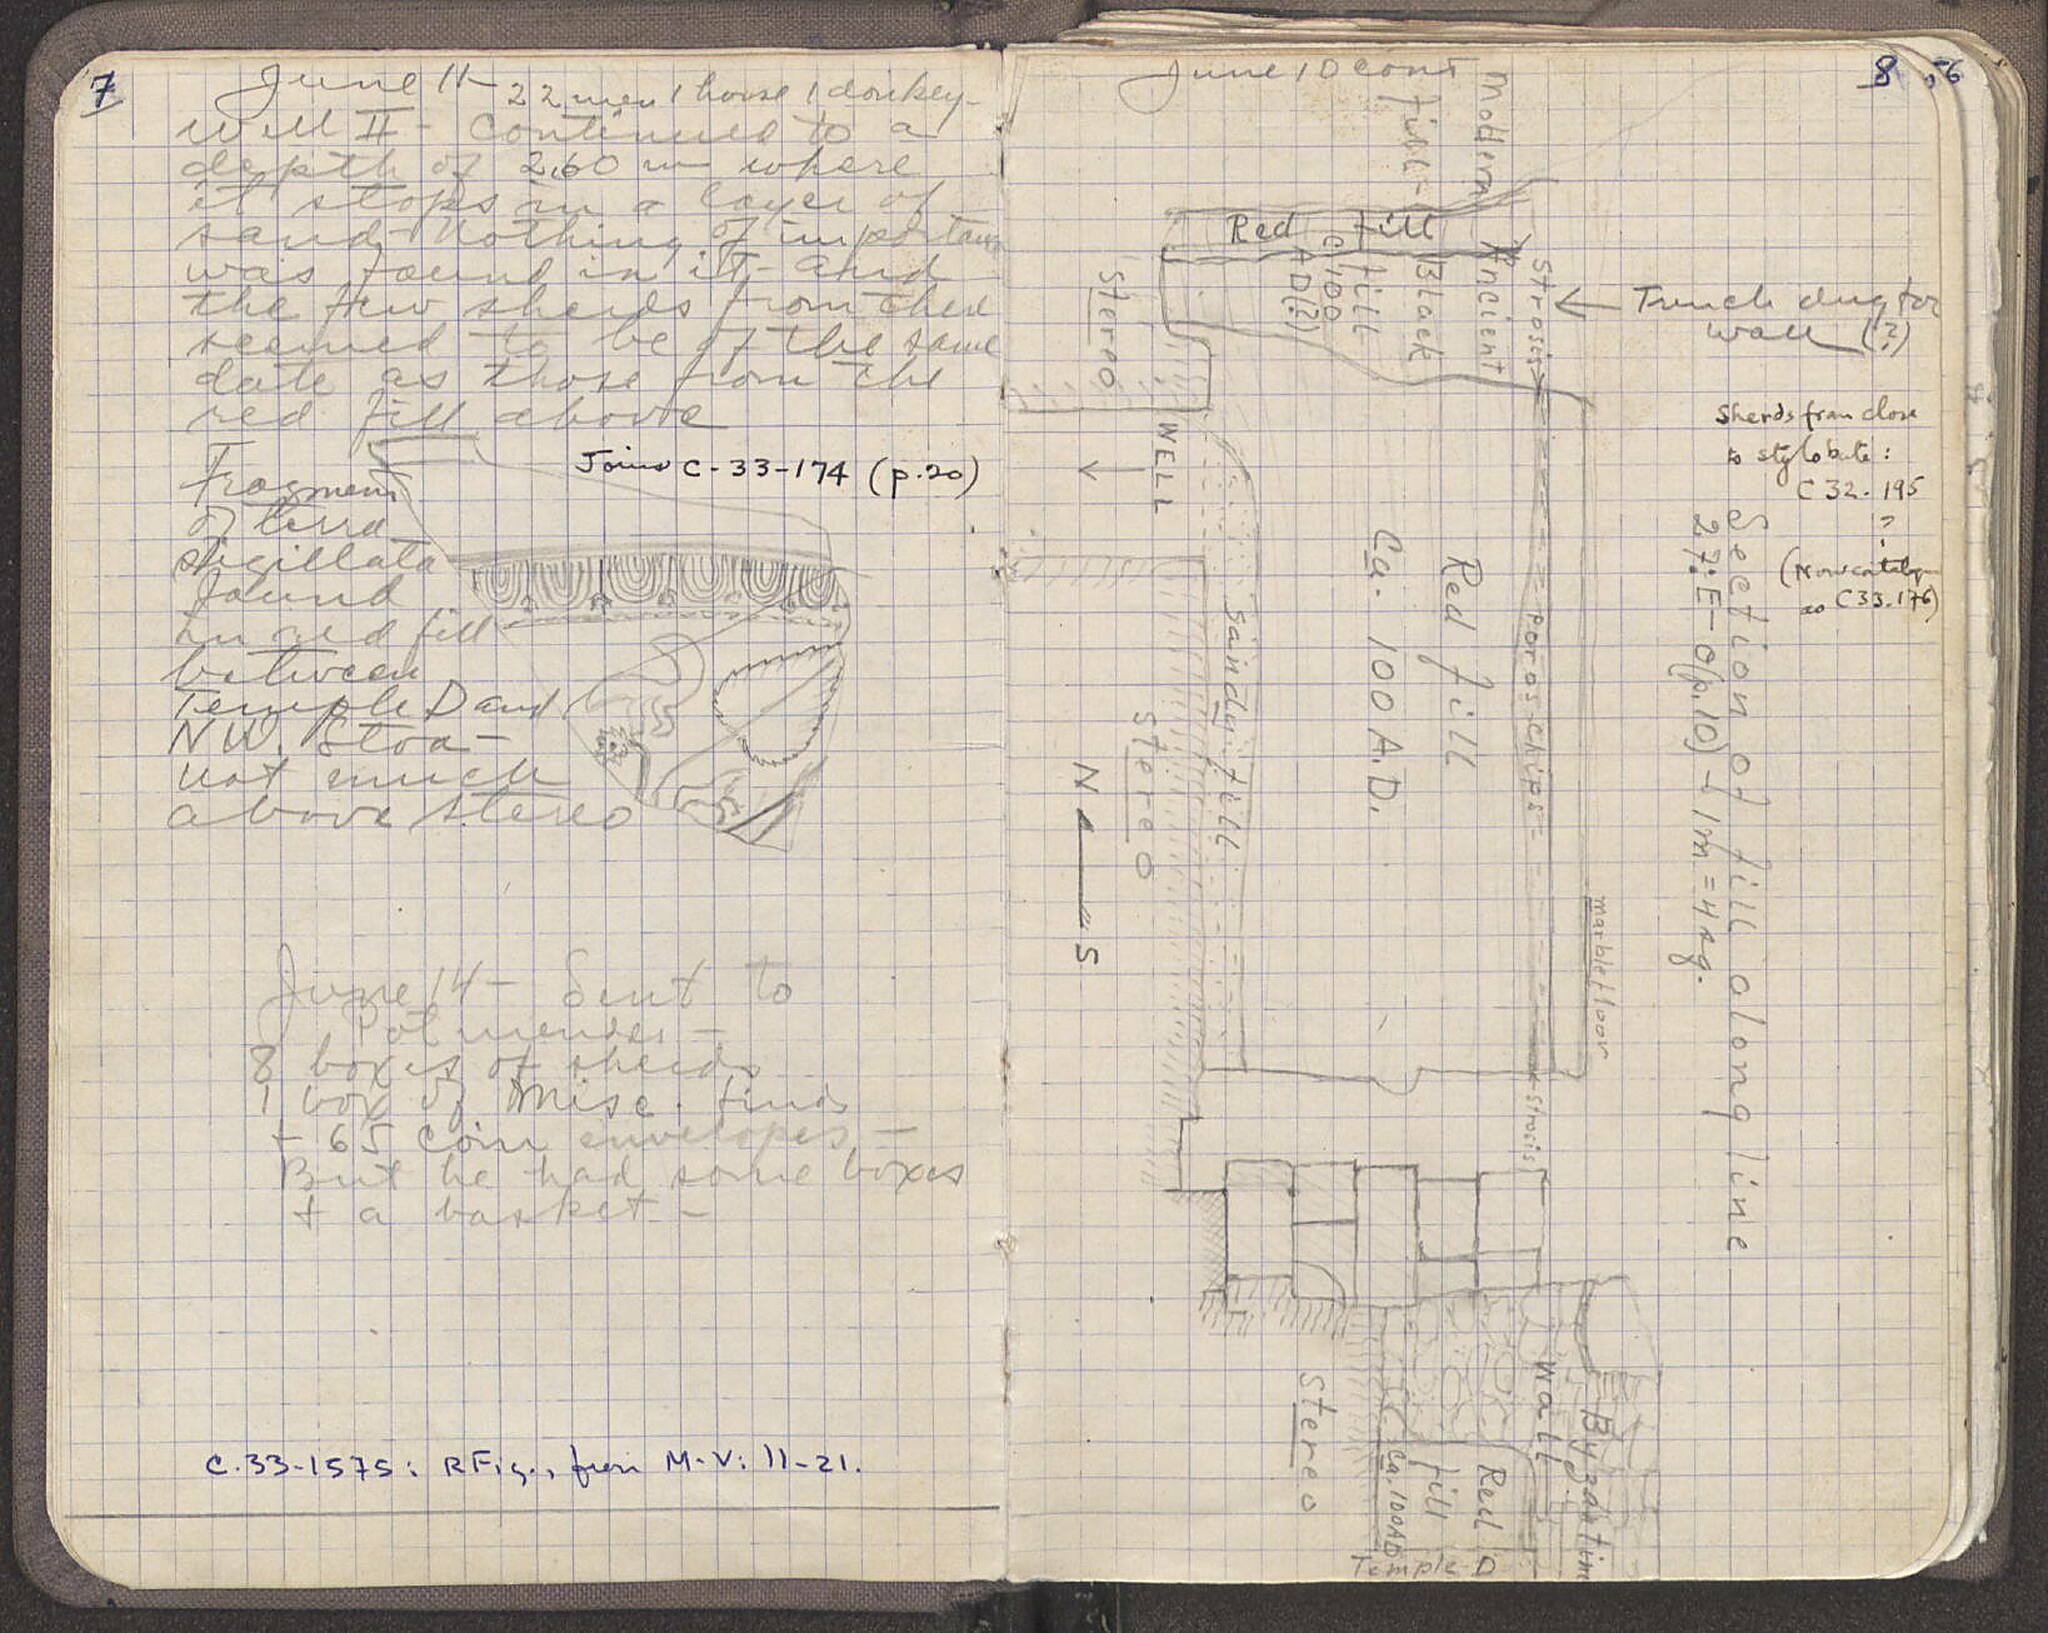 7
June 11 - 22 men 1 horse 1 donkey -
Well II - continued to a
depth of 2.60 m where
it stops in a layer of
sand - Nothing of importance
was found in it - and
the few sherds from there
seemed to be of the same
date as those from the
red fill above
Joins C-33-174 (p.20)
Fragment
of terra
sigillata
found
in red fill
between
Temple D and
NW. Stoa -
not much
above stereo
June 14 - Sent to
Pot mender -
8 boxes of sherds
1 box of misc. finds
+ 65 coin envelopes -
But he had some boxes
+ a basket -
C.33-1575: RFig., from M-V: 11-21.
June 10 cont
8
56
Modern
fill -
Red fill
Ancient
Black
fill
Ca. 100
AD(?)
Strosis
Trench dug for
wall (?)
Stereo
WELL
V
Sherds from close
to stylobate:
C 32. 195
?
(Now catalogue
as C33.176)
Section of fill along line
27:E-O(p.10) - 1m = 4 sq.
marble floor
Poros chips
Strosis
Red fill
Ca. 100 A.D.
Sandy fill
Stereo
N S
Byzantine
Wall
Red
fill
Ca. 100 AD
Stereo
Temple D